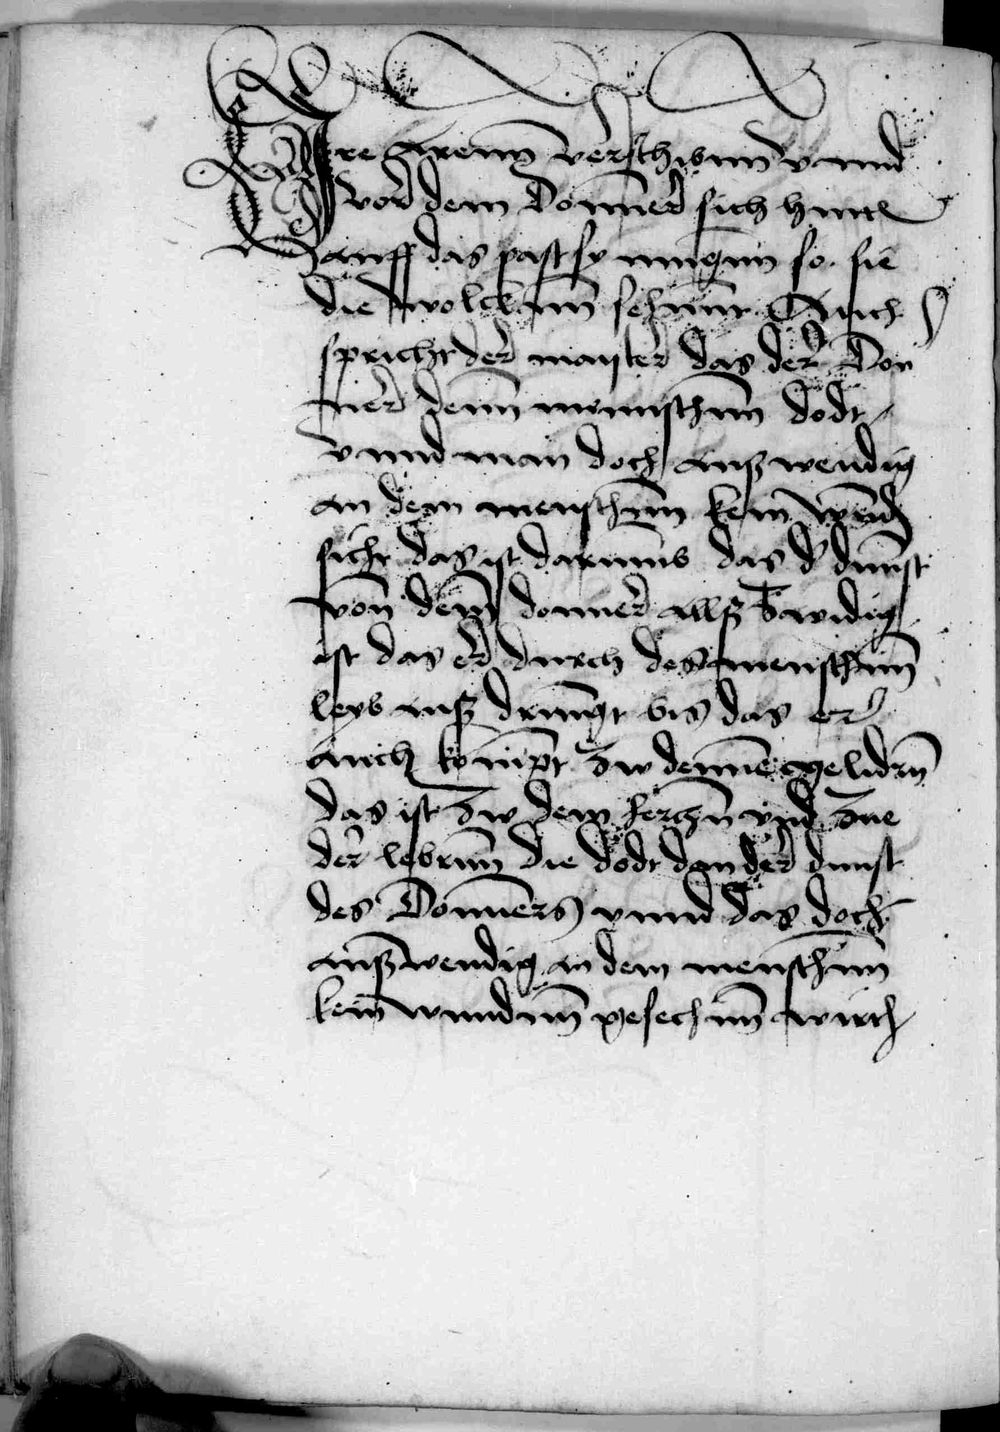 Ire oren verschopenn vnnd
vor dem Donner sich huete
auff das past sy mugen so sie
die wolcken sehenn Auch
spricht der mayster das der Don
ner denn mennschenn dodt
vnnd man doch auszwendig
an dem menschenn kein wund
sicht das ist darumb das d dunst
von dem donner allsz
ist das er durch des menschenn
leyb ausz dringt bis das er
auch kompt zw denne gelidrn
das ist zw dem herczn vnd zue
der lebrnn die dodt dan der dunst
des Donners vnnd das doch
auszwendig an dem menschenn
kein wundnn gesechnn wirth